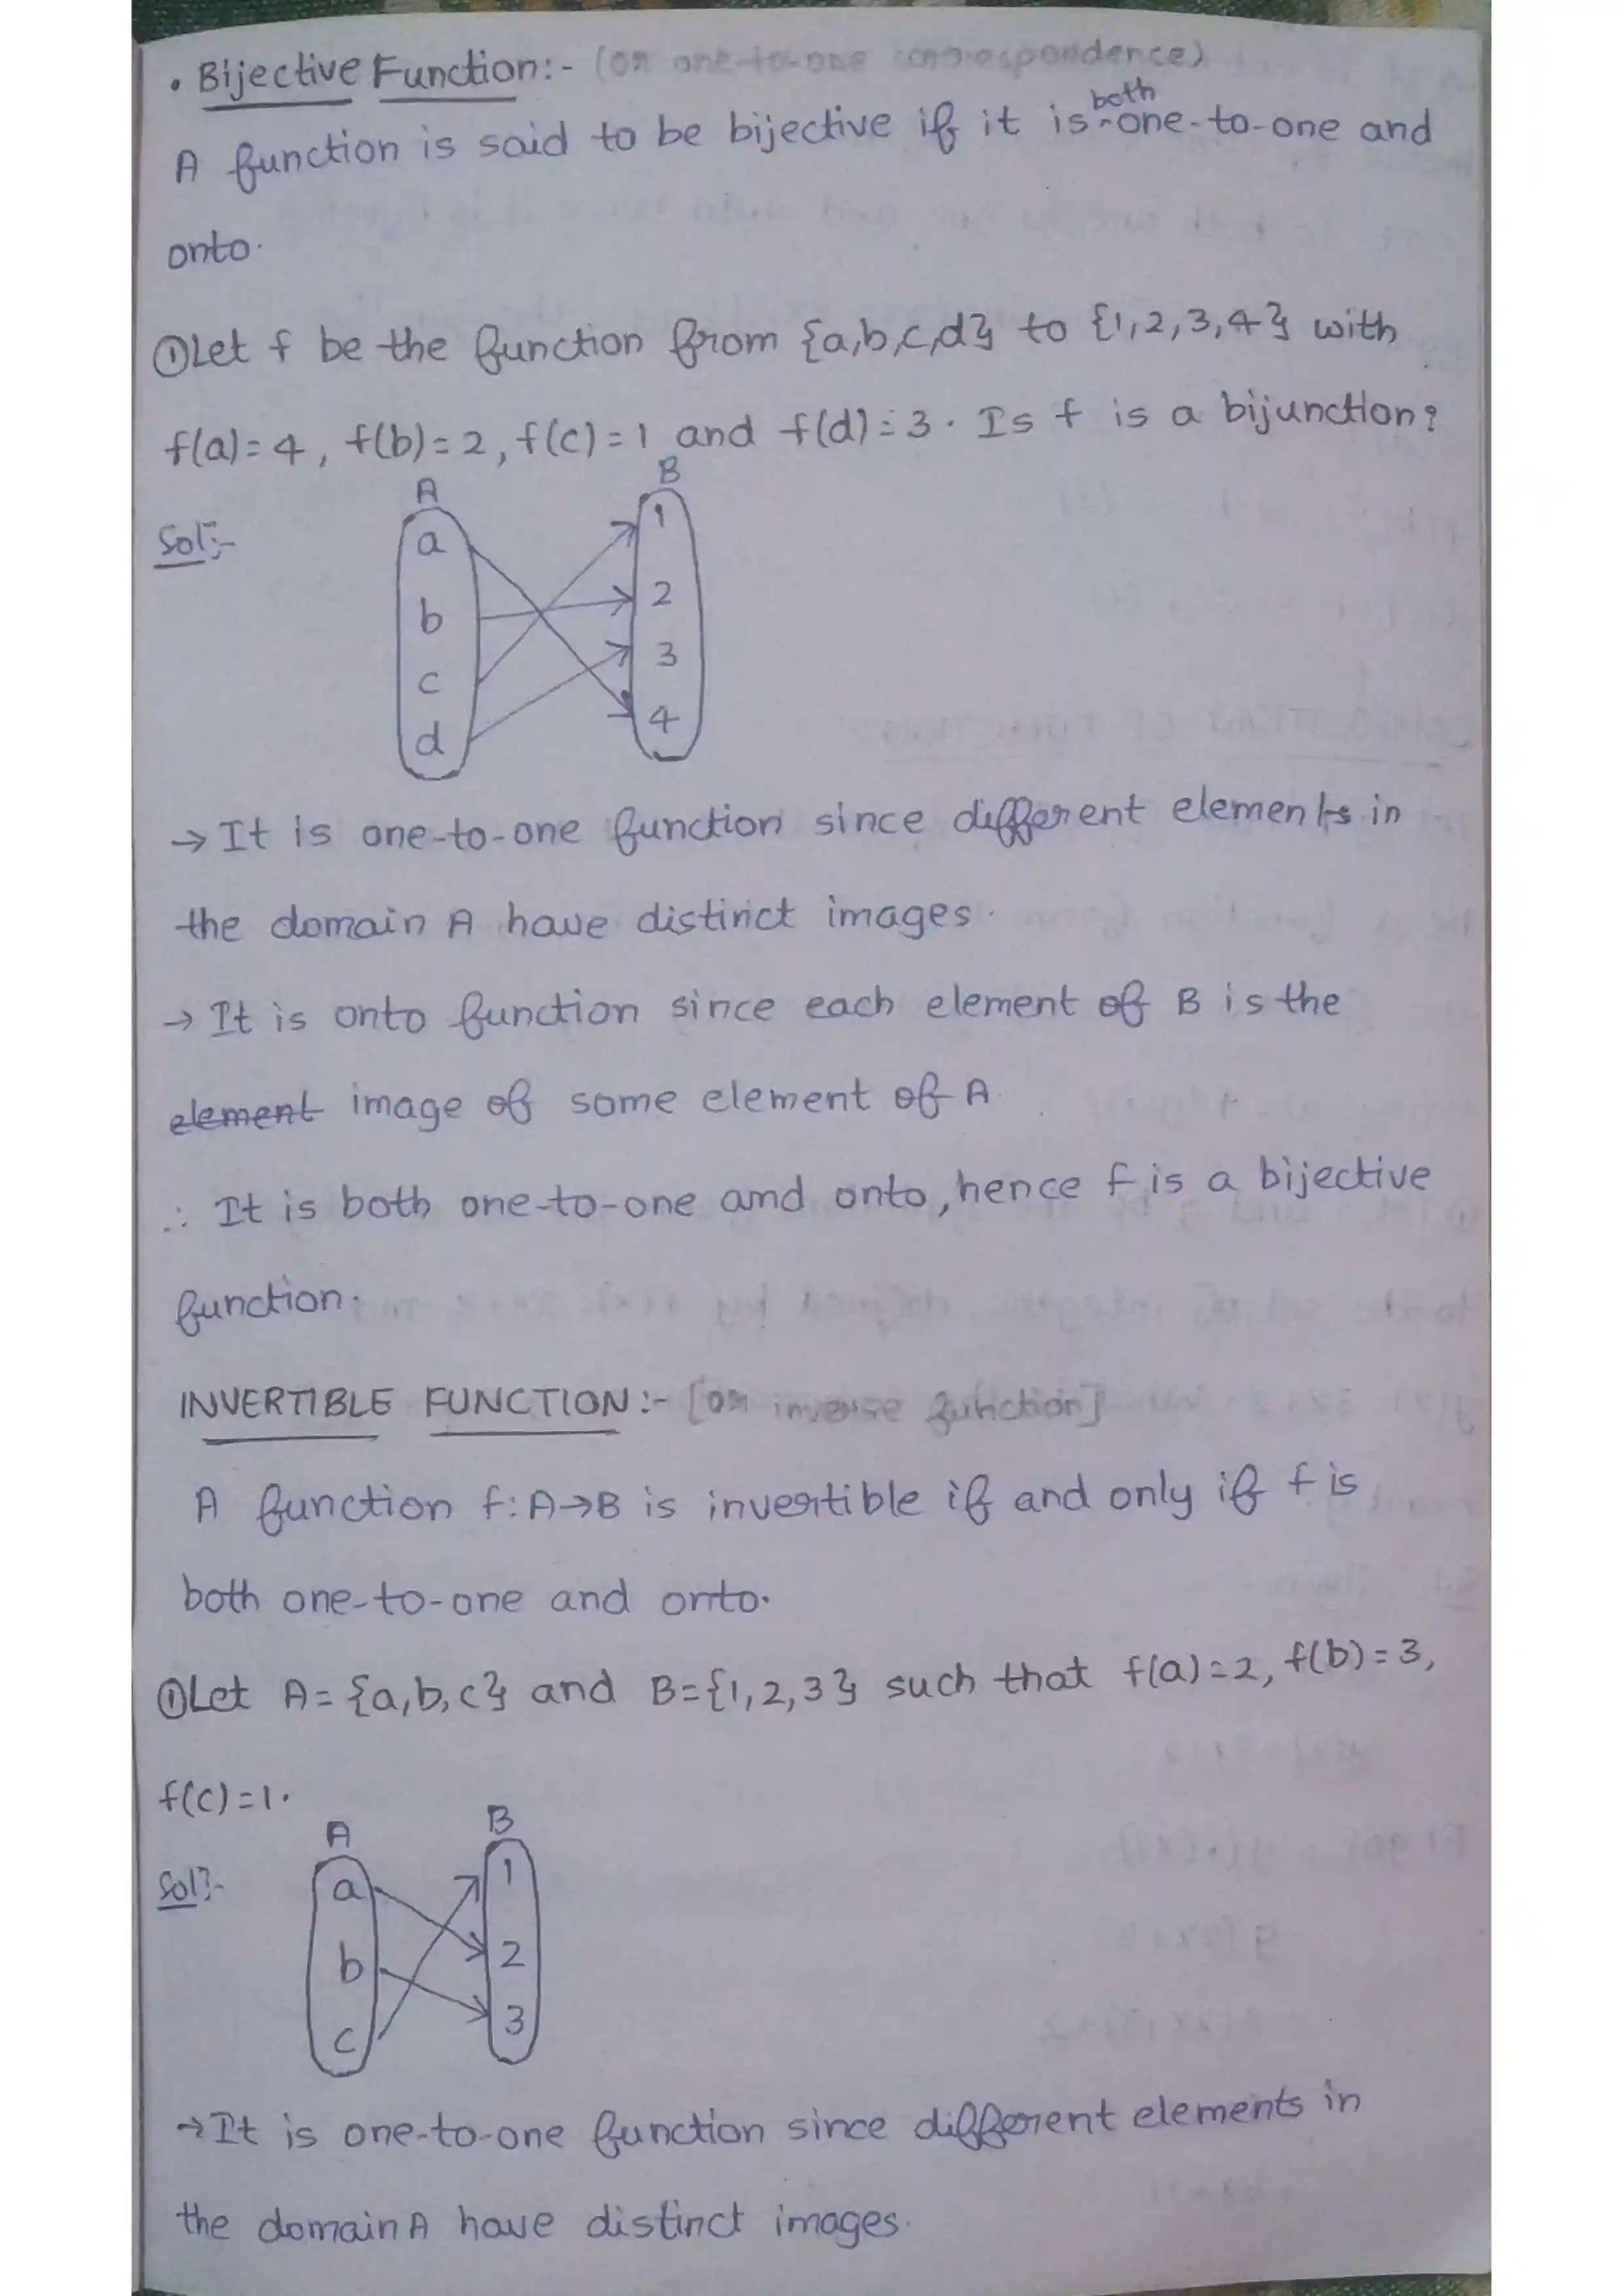 • Bijective Function:- (or one-to-one correspondence)
both
A function is said to be bijective if it is one-to-one and
onto.
①Let f be the function from {a,b,c,d} to {1,2,3,4} with
f(a)=4, f(b)=2, f(c)=1 and f(d)=3. Is f is a bijunction?
A B
Sol:-
a 1
b 2
c 3
d 4
→ It is one-to-one function since different elements in
the domain A have distinct images.
→ It is onto function since each element of B is the
element image of some element of A.
∴ It is both one-to-one and onto, hence f is a bijective
function.
INVERTIBLE FUNCTION:- [or inverse function]
A function f:A→B is invertible if and only if f is
both one-to-one and onto.
①Let A={a,b,c} and B={1,2,3} such that f(a)=2, f(b)=3,
f(c)=1.
A B
Sol:-
a 1
b 2
c 3
→It is one-to-one function since different elements in
the domain A have distinct images.